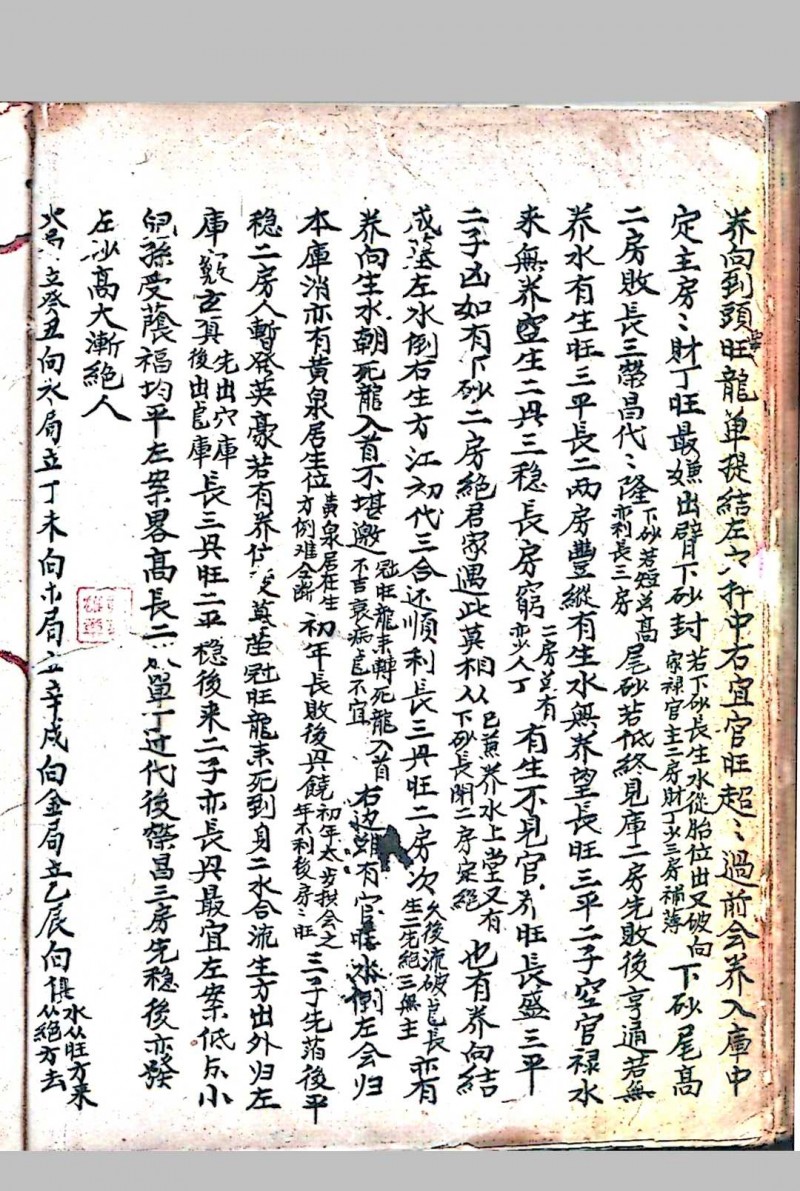 养向到頭旺龍单提結左穴扦中右宜官旺超〻過前会养入庫中
定主房〻財丁旺最嫌出臂下砂封若下砂長生水從胎位出又破向家禄官主二房財丁少三房補薄下砂尾高
二房敗長三榮昌代〻隆下砂若短並高亦利長三房尾砂若低終見庫二房先敗後亨通若無
养水有生旺三平長二两房豐縱有生水無养望長旺三平二子空官禄水
来無养空生二丹三穏長房窮二房並有亦少人丁有生不見官养旺長盛三平
二子凶如有下砂二房絕君家遇此莫相从已兼养水上堂又有下砂長閉二房定絕也有养向結
成塟左水倒右生方江初代三合还順利長三丹旺二房次久後流破官長生二先絕三無主亦有
养向生水朝死龍入首不堪邀冠旺龍束轉死龍入首不吉衰病官不宜右边朝有官旺水倒左会归
本庫消亦有黄泉居生位黄泉居在生方例难全断初年長敗後丹饒初年太步找会之年不利後房〻旺三子先萡後平
稳二房人暫發英豪若有养位塟茔冠旺龍束死到身二水合流生方出外归左
庫竅玄真先出穴庫後出官庫長三丹旺二平穏後来二子亦長丹最宜左案低点小
兒孫受蔭福均平左案畧高長二単丁近代後榮昌三房先穏後亦發
左沙高大漸絕人
火局立癸丑向水局立丁未向木局立辛戍向金局立乙辰向俱水从旺方来从絕方去